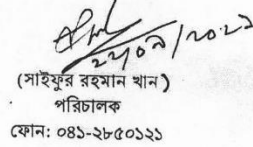 ২২/০৯/২০২১
(সাইফুর রহমান খান)
পরিচালক
ফোন: ০৪১-২৮৫০১২১